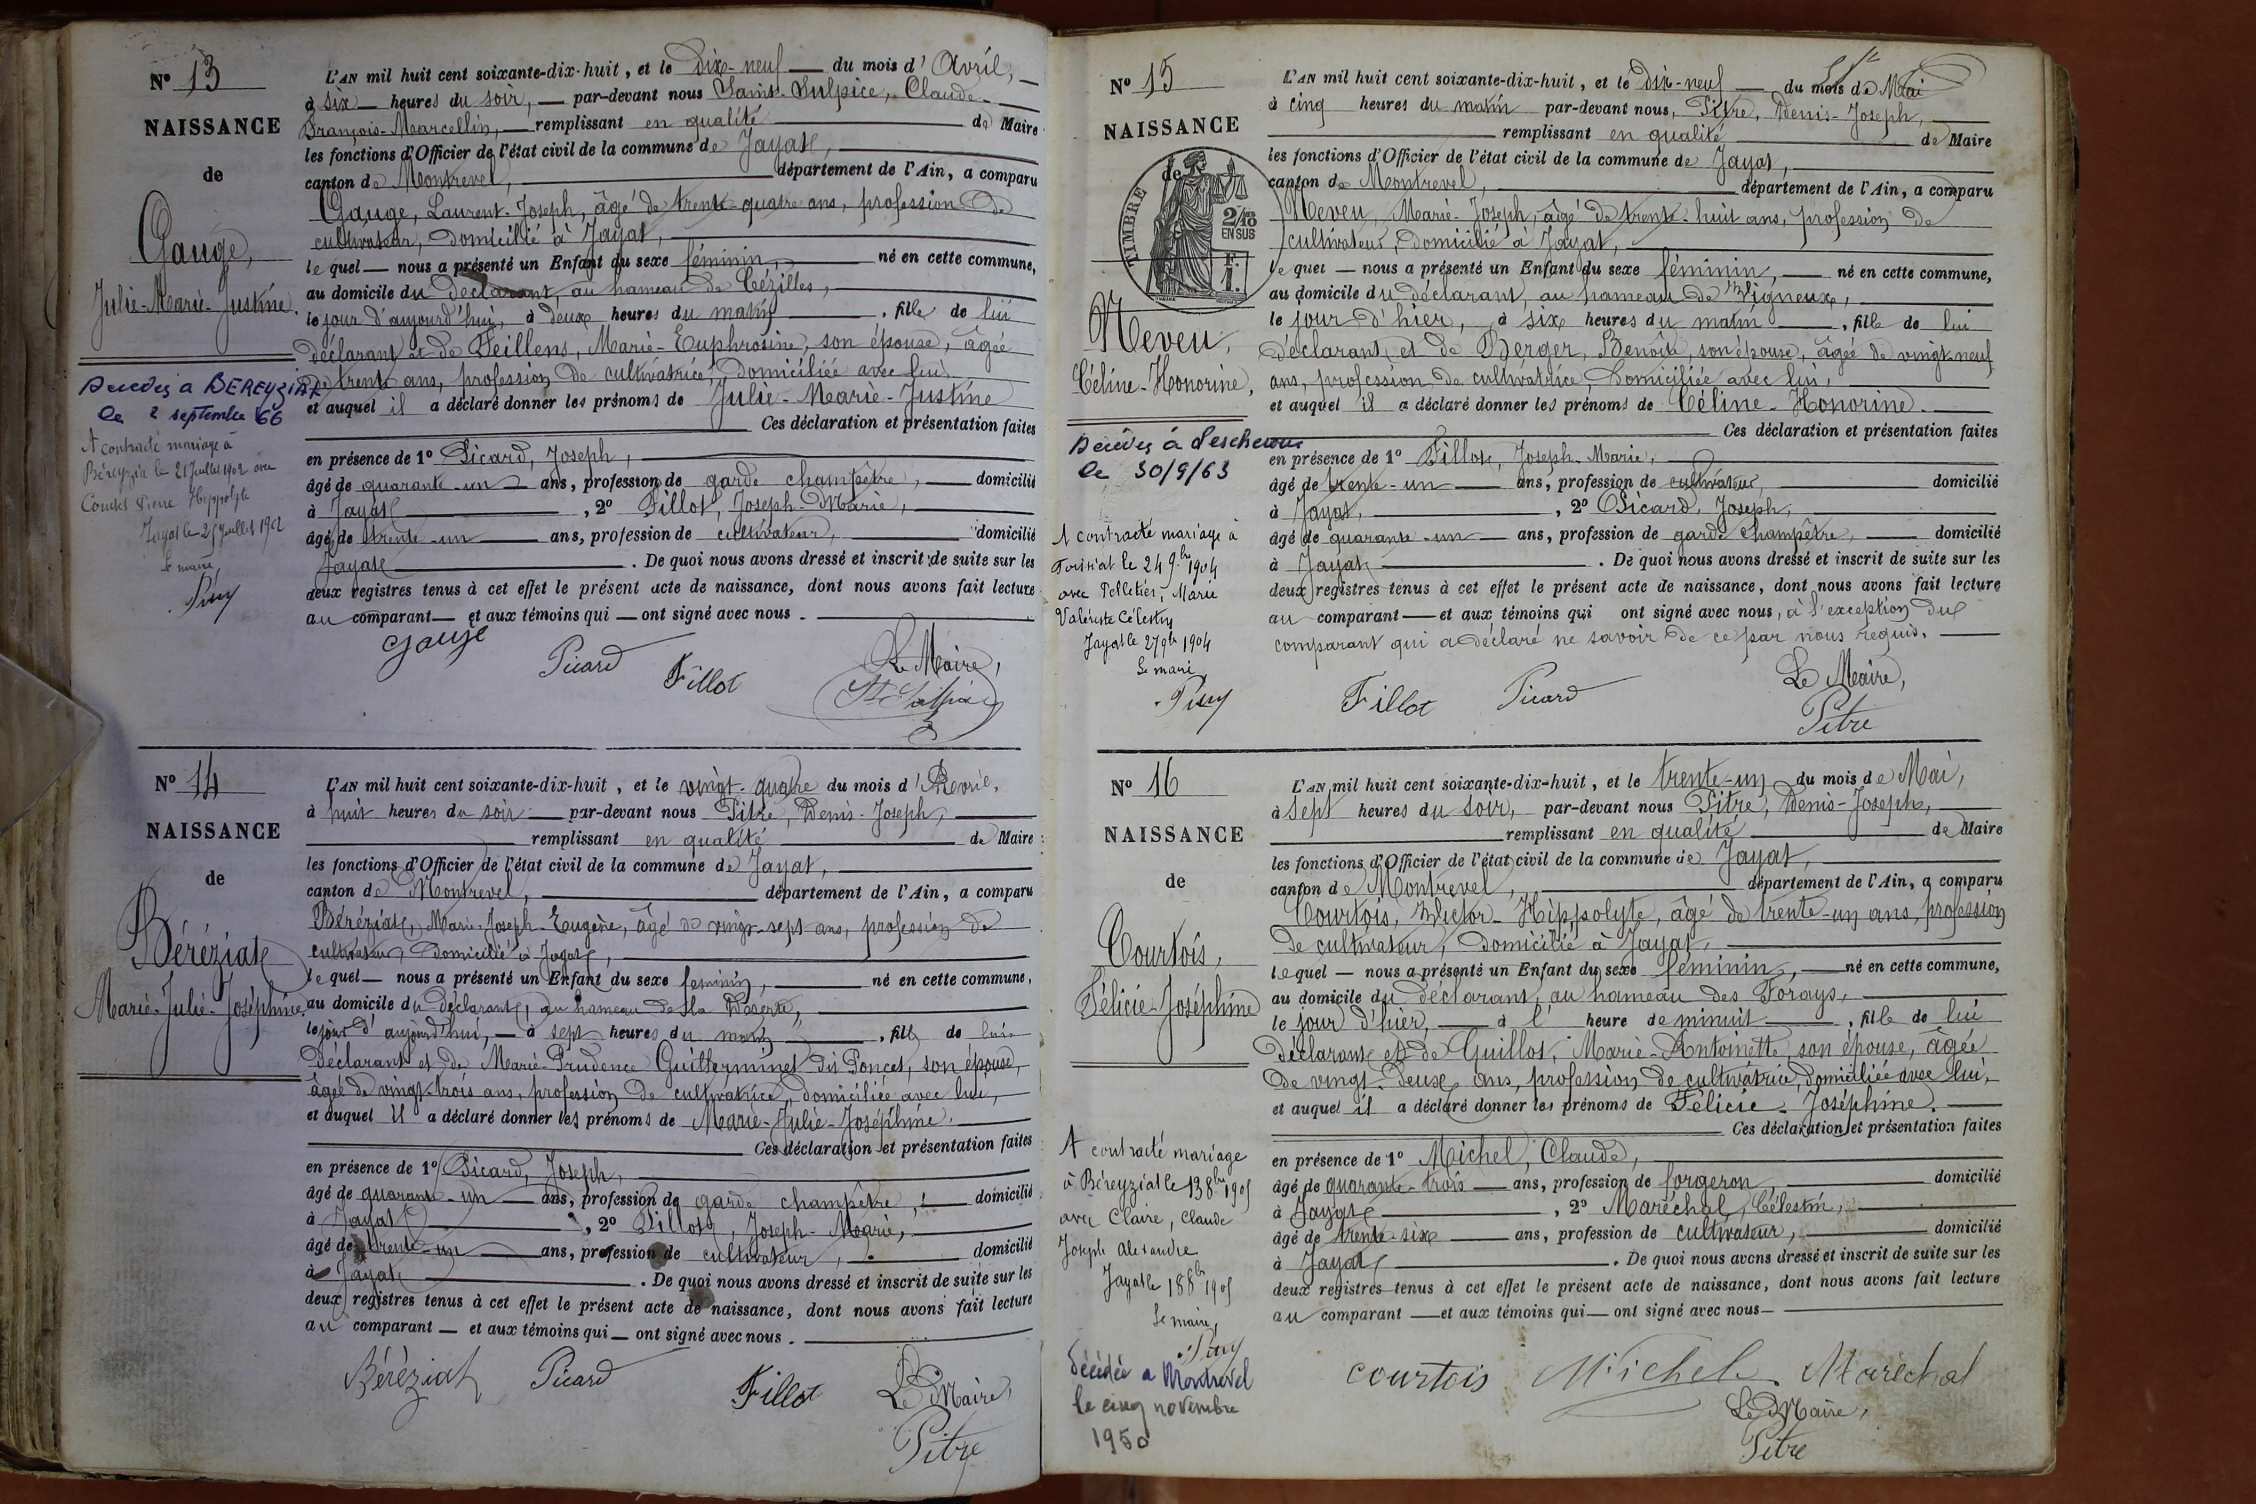 N° 13
NAISSANCE
de
Gauge,
Julie-Marie-Justine.
Décédée a BEREYZIAT
le 2 septembre 66
A contracté mariage à
Béreyziat le 21 Juillet 1902 avec
Pierre Hippolyte
Jayat le 25 Juillet 1902
Le maire,
L'AN mil huit cent soixante-dix-huit, et le dix-neuf — du mois d'Avril, —
à six — heures du soir, — par-devant nous Saint-Sulpice, Claude-
François-Marcellin, — remplissant en qualité — de Maire
les fonctions d'Officier de l'état civil de la commune de Jayat, —
canton de Montrevel, — département de l'Ain, a comparu
Gauge, Laurent-Joseph, âgé de trente-quatre ans, profession de
cultivateur, domicilié à Jayat, —
lequel — nous a présenté un Enfant du sexe féminin, — né en cette commune,
au domicile du déclarant, au hameau de Cézilles, —
le jour d'aujourd'hui, à deux heures du matin — , fille de lui
déclarant et de Feillens, Marie-Euphrosine, son épouse, âgée
de trente ans, profession de cultivatrice, domiciliée avec lui. —
et auquel il a déclaré donner les prénoms de Julie-Marie-Justine
Ces déclaration et présentation faites
en présence de 1° Picard, Joseph, —
âgé de quarante-un — ans, profession de garde champêtre, — domicilié
à Jayat — , 2° Fillot, Joseph-Marie, —
âgé de trente-un — ans, profession de cultivateur, — domicilié
Jayat — . De quoi nous avons dressé et inscrit de suite sur les
deux registres tenus à cet effet le présent acte de naissance, dont nous avons fait lecture
au comparant — et aux témoins qui — ont signé avec nous. —
Gauge
Picard
Fillot
Le Maire,
St Sulpice
N° 14
NAISSANCE
de
Béréziat
Marie-Julie-Joséphine.
L'AN mil huit cent soixante-dix-huit, et le vingt-quatre du mois d'Avril,
à huit heures du soir — par-devant nous Pitre, Denis-Joseph, —
remplissant en qualité — de Maire
les fonctions d'Officier de l'état civil de la commune de Jayat, —
canton de Montrevel, — département de l'Ain, a comparu
Béréziat, Marie-Joseph-Eugène, âgé de vingt-sept ans, profession de
cultivateur, domicilié à Jayat, —
lequel — nous a présenté un Enfant du sexe féminin, — né en cette commune,
au domicile du déclarant, au hameau de la —
le jour d'aujourd'hui, — à sept heures du matin — , fille de lui
déclarant et de Marie-Prudence Guillerminet dit Poncet, son épouse,
âgée de vingt-trois ans, profession de cultivatrice, domiciliée avec lui, —
et auquel il a déclaré donner les prénoms de Marie-Julie-Joséphine. —
Ces déclaration et présentation faites
en présence de 1° Picard, Joseph, —
âgé de quarante-un — ans, profession de garde champêtre, — domicilié
à Jayat — , 2° Fillot, Joseph-Marie, —
âgé de trente-un — ans, profession de cultivateur, — domicilié
à Jayat — . De quoi nous avons dressé et inscrit de suite sur les
deux registres tenus à cet effet le présent acte de naissance, dont nous avons fait lecture
au comparant — et aux témoins qui — ont signé avec nous. —
Béréziat
Picard
Fillot
Le Maire,
Pitre
N° 15
NAISSANCE
de
TIMBRE
2/10
EN SUS
F.
1.
Neveu,
Céline-Honorine,
Décédée à Lescheroux
le 30/9/63
A contracté mariage à
Foissiat le 24 9bre 1904
avec Pelletier, Marie
Célestin
Jayat le 27 9bre 1904
Le maire
L'AN mil huit cent soixante-dix-huit, et le dix-neuf — du mois de Mai
à cinq heures du matin par-devant nous, Pitre, Denis-Joseph, —
remplissant en qualité — de Maire
les fonctions d'Officier de l'état civil de la commune de Jayat, —
canton de Montrevel, — département de l'Ain, a comparu
Neveu, Marie-Joseph, âgé de trente-huit ans, profession de
cultivateur, domicilié à Jayat, —
lequel — nous a présenté un Enfant du sexe féminin, — né en cette commune,
au domicile du déclarant, au hameau de Vigneux, —
le jour d'hier, à six heures du matin — , fille de lui
déclarant, et de Berger, Benoîte, son épouse, âgée de vingt-neuf
ans, profession de cultivatrice, domiciliée avec lui, —
et auquel il a déclaré donner les prénoms de Céline-Honorine. —
Ces déclaration et présentation faites
en présence de 1° Fillot, Joseph-Marie, —
âgé de trente-un — ans, profession de cultivateur, — domicilié
à Jayat, — , 2° Picard, Joseph, —
âgé de quarante-un — ans, profession de garde champêtre, — domicilié
à Jayat — . De quoi nous avons dressé et inscrit de suite sur les
deux registres tenus à cet effet le présent acte de naissance, dont nous avons fait lecture
au comparant — et aux témoins qui ont signé avec nous, à l'exception du
comparant qui a déclaré ne savoir de ce par nous requis. —
Fillot
Picard
Le Maire,
Pitre
N° 16
NAISSANCE
de
Courtois,
Félicie-Joséphine
A contracté mariage
à Béreyziat le 13 8bre 1905
avec Claire, Claude
Joseph Alexandre
Jayat le 18 8bre 1905
Le maire,
Décédée a Montrevel
le cinq novembre
1950
L'AN mil huit cent soixante-dix-huit, et le trente-un du mois de Mai,
à sept heures du soir, par-devant nous Pitre, Denis-Joseph, —
remplissant en qualité — de Maire
les fonctions d'Officier de l'état civil de la commune de Jayat, —
canton de Montrevel, — département de l'Ain, a comparu
Courtois, Victor-Hippolyte, âgé de trente-un ans, profession
de cultivateur, domicilié à Jayat, —
lequel — nous a présenté un Enfant du sexe féminin, — né en cette commune,
au domicile du déclarant, au hameau des Forays, —
le jour d'hier, — à l' heure de minuit — , fille de lui
déclarant et de Guillot, Marie-Antoinette, son épouse, âgée
de vingt-deux ans, profession de cultivatrice, domiciliée avec lui, —
et auquel il a déclaré donner les prénoms de Félicie-Joséphine. —
Ces déclaration et présentation faites
en présence de 1° Michel, Claude, —
âgé de quarante-trois — ans, profession de forgeron, — domicilié
à Jayat — , 2° Maréchal, Célestin, —
âgé de trente-six — ans, profession de cultivateur, — domicilié
à Jayat — . De quoi nous avons dressé et inscrit de suite sur les
deux registres tenus à cet effet le présent acte de naissance, dont nous avons fait lecture
au comparant — et aux témoins qui — ont signé avec nous —
Courtois
Michel
Maréchal
Le Maire,
Pitre